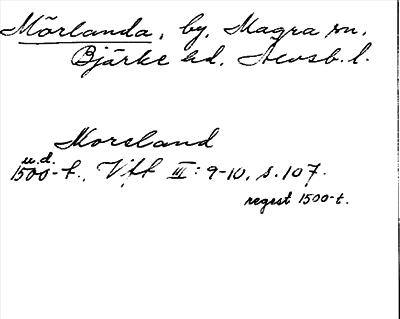 Mörlanda, by, Magra sn,
Bjärke hd, Älvsb. l.
Morsland
u.d.
1500-t., Vft III: 9-10, s. 107.
regest 1500-t.